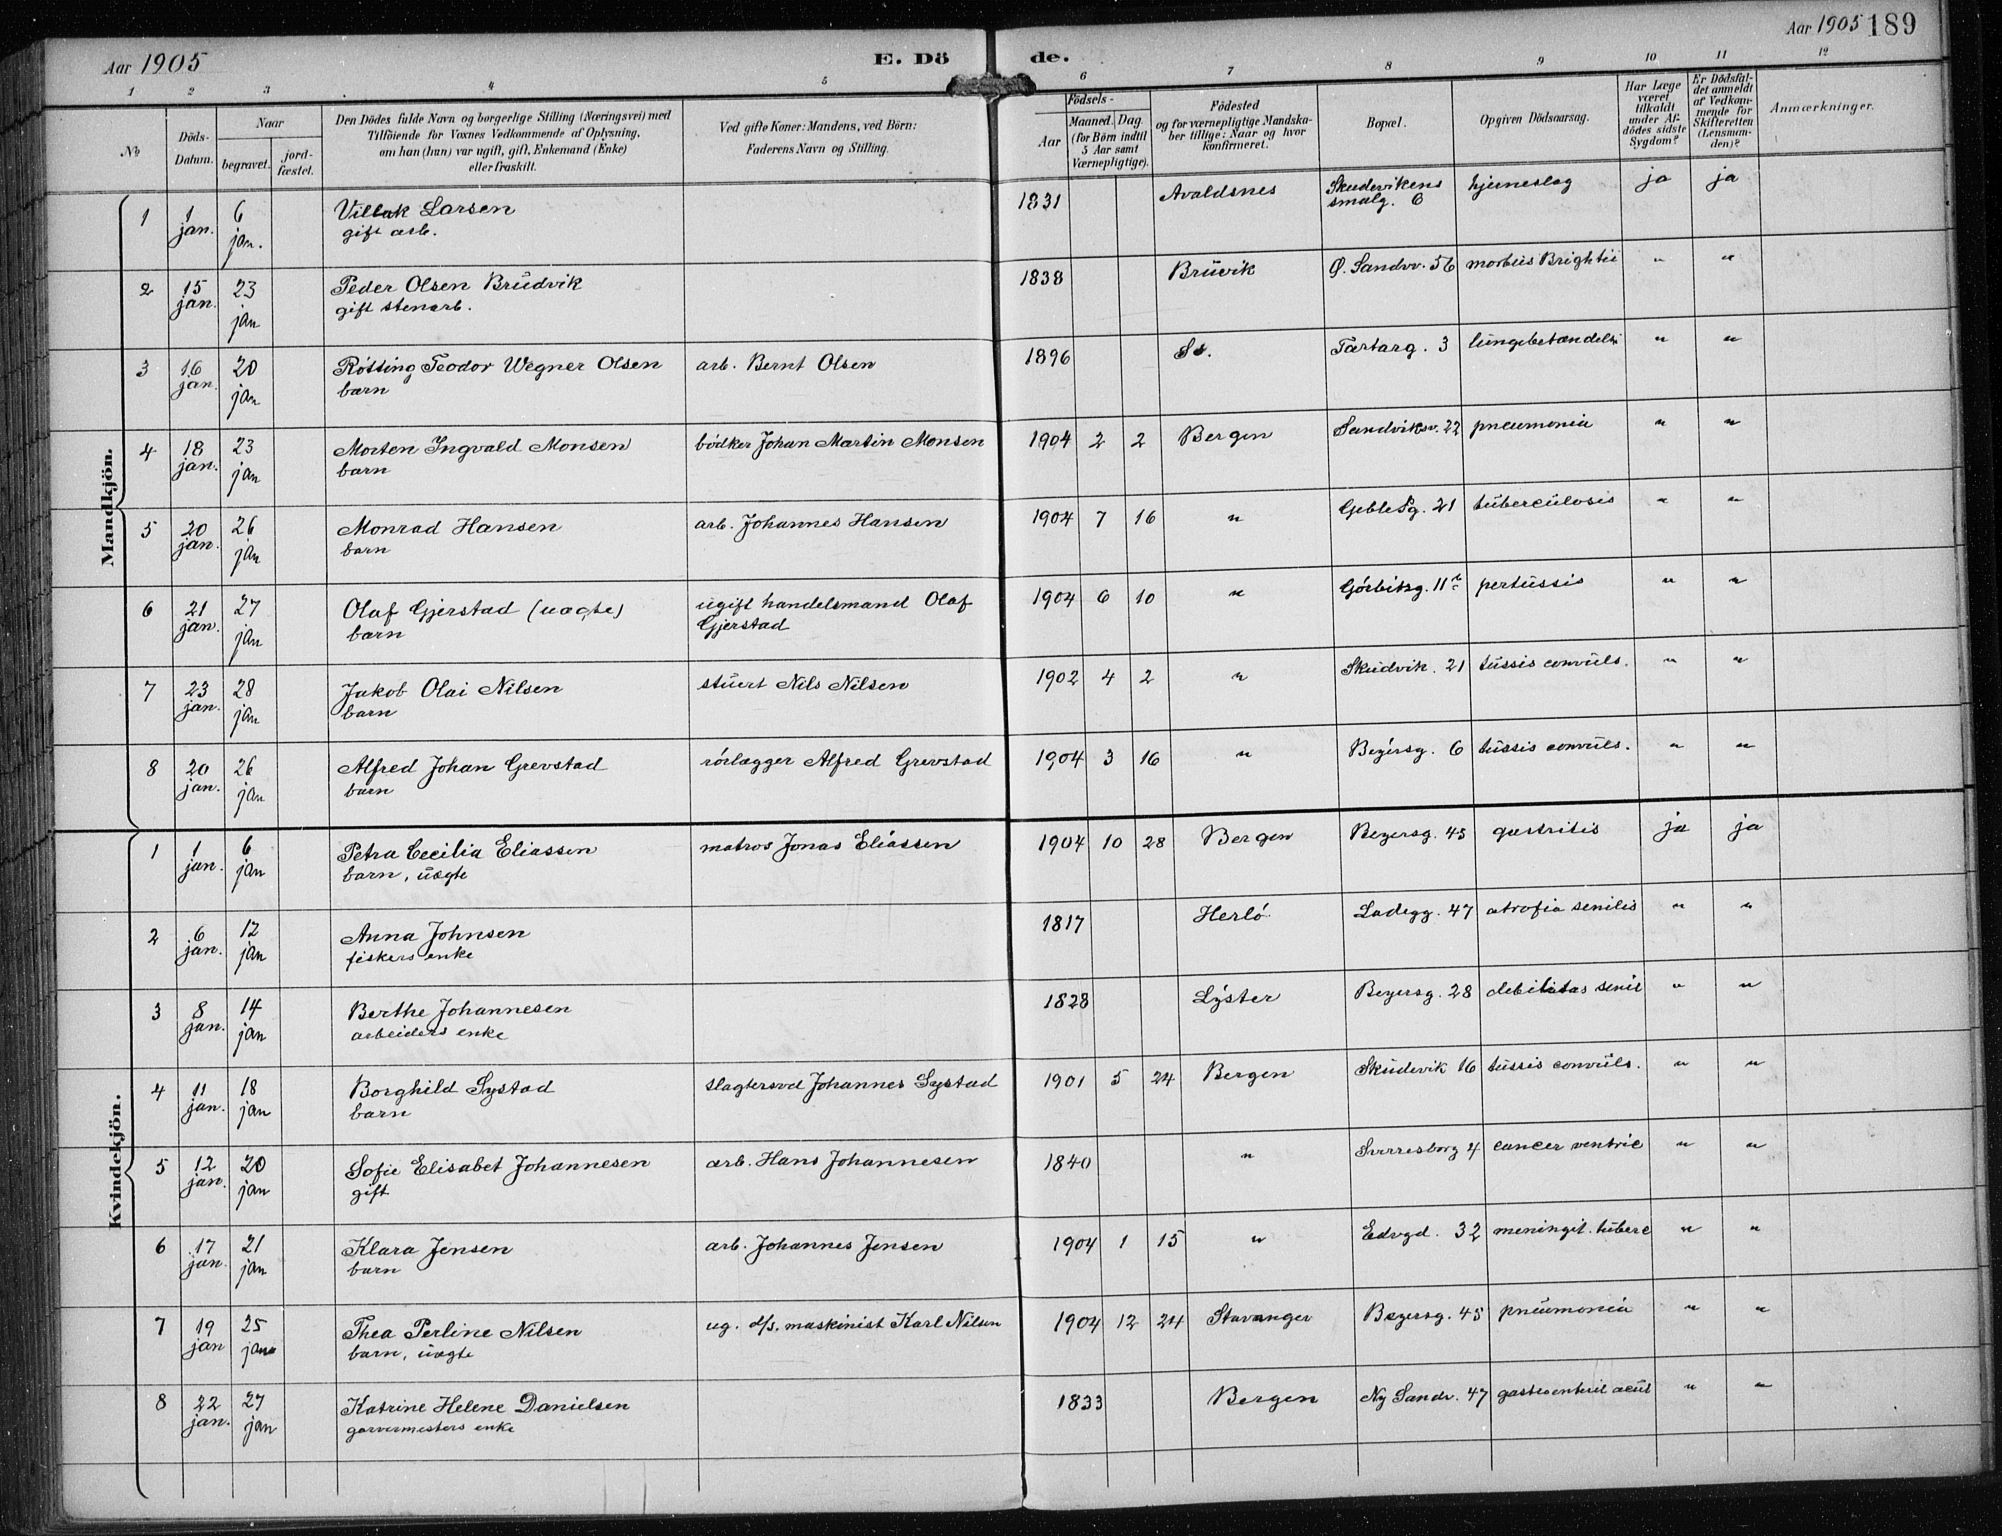 Aar 1905
E. Dö
de.
Aar 1905 189
1 2 3 4 5 6 7 8 9 10 11 12
No
Döds-
Datum.
Naar
begravet.
jord-
fæstet.
Den Dödes fulde Navn og borgerlige Stilling (Næringsvei) med
Tilföiende for Voxnes Vedkommende af Oplysning,
om han (hun) var ugift, gift, Enkemand (Enke)
eller fraskilt.
Ved gifte Koner: Mandens, ved Börn:
Faderens Navn og Stilling.
Födsels-
Aar
Maaned. Dag.
(for Börn indtil
5 Aar samt
Værnepligtige).
Födested
og for værnepligtige Mandska-
ber tillige: Naar og hvor
konfirmeret.
Bopæl.
Opgiven Dödsaarsag.
Har Læge
været
tilkaldt
under Af-
dödes sidste
Sygdom?
Er Dödsfal-
det anmeldt
af Vedkom-
mende for
Skifteretten
(Lensman-
den)?
Anmærkninger.
Mandkjön.
1 1 jan. 6 jan. Villak Larsen
gift arb.
1831 Avaldsnes Skudevikens
smalg. 6 hjerneslag ja ja
2 15 jan. 23 jan Peder Olsen Brudvik
gift stenarb.
1838 Bruvik Ø. Sandvv. 56 morbus Brightii " "
3 16 jan. 20 jan Rötting Teodor Wegner Olsen
barn
arb. Bernt Olsen 1896 Tartarg. 3 lungebetændelse " "
4 18 jan. 23 jan Morten Ingvald Monsen
barn
bödker Johan Martin Monsen 1904 2 2 Bergen Sandviksv. 22 pneumonia " "
5 20 jan. 26 jan Monrad Hansen
barn
arb. Johannes Hansen 1904 7 16 " 21 tuberculosis " "
6 21 jan. 27 jan Olaf Gjerstad (uægte)
barn
ugift handelsmand Olaf
Gjerstad
1904 6 10 " Görbitzg. 11 pertussis " "
7 23 jan. 28 jan Jakob Olai Nilsen
barn
stuert Nils Nilsen 1902 4 2 " Skudvik. 21 tussis convuls. " "
8 20 jan. 26 jan Alfred Johan Grevstad
barn
rörlægger Alfred Grevstad 1904 3 16 " Beyersg. 6 tussis convuls. " "
Kvindekjön.
1 1 jan. 6 jan Petra Cecilia Eliassen
barn, uægte
matros Jonas Eliassen 1904 10 28 Bergen Beyersg. 45 gastritis ja ja
2 6 jan. 12 jan Anna Johnsen
fiskers enke
1817 Herlö Ladegg. 47 atrofia senilis " "
3 8 jan. 14 jan Berthe Johannesen
arbeiders enke
1828 Lyster Beyersg. 28 debilitas senil " "
4 11 jan. 18 jan Borghild Systad
barn
slagtersvd Johannes Systad 1901 5 24 Bergen Skudevik 16 tussis convuls. " "
5 12 jan. 20 jan Sofie Elisabet Johannesen
gift
arb. Hans Johannesen 1840 " Sverresborg 4 cancer ventric " "
6 17 jan. 21 jan Klara Jensen
barn
arb. Johannes Jensen 1904 1 15 " Edvgd. 32 meningit. tuberc " "
7 19 jan 25 jan Thea Perline Nilsen
barn, uægte
ug. d/s. maskinist Karl Nilsen 1904 12 24 Stavanger Beyersg. 45 pneumonia " "
8 22 jan. 27 jan Katrine Helene Danielsen
garvermesters enke
1833 Bergen Ny Sandv. 47 gastroenterit acut " "